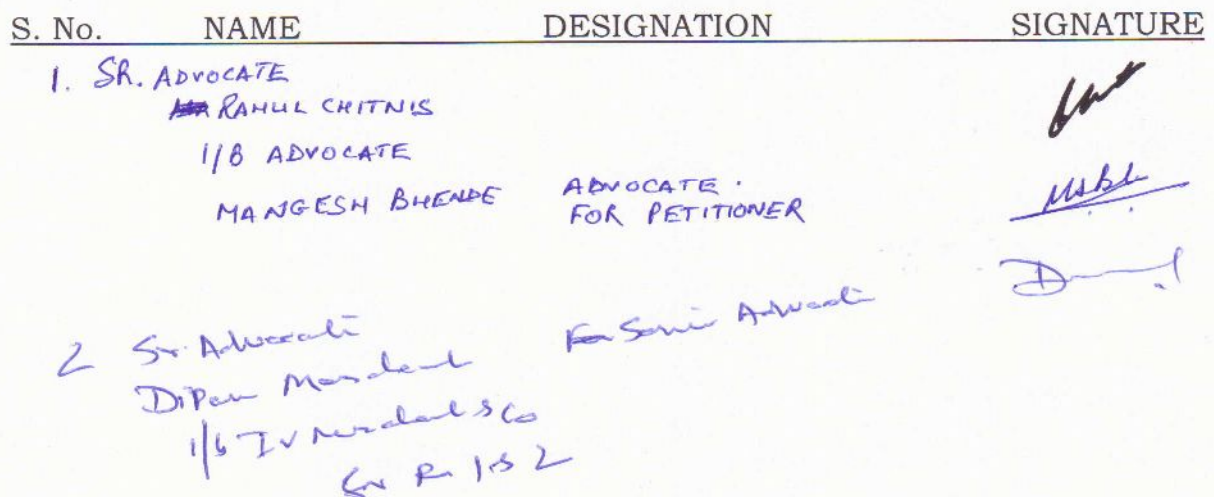 S. No. NAME DESIGNATION SIGNATURE
1. SR. ADVOCATE
RAHUL CHITNIS
I/B ADVOCATE
MANGESH BHENDE ADVOCATE.
FOR PETITIONER
2 Sr. Advocate Senior Advocate
Dipan Merchant
I/b I V Merchant & Co
for R. 1 & 2